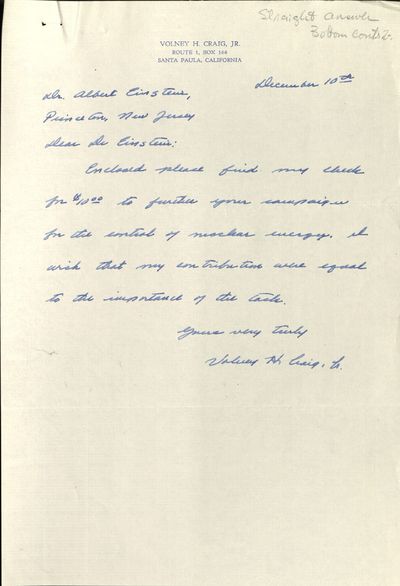 Straight answer
VOLNEY H. CRAIG, JR.
ROUTE 1, BOX 166
SANTA PAULA, CALIFORNIA
December 10th
Dr. Albert Einstein,
Princeton, New Jersey
Dear Dr Einstein:
Enclosed please find my check
for $10.00 to further your campaign
for the control of nuclear energy. I
wish that my contribution were equal
to the importance of the task.
Yours very truly
Volney H. Craig, Jr.